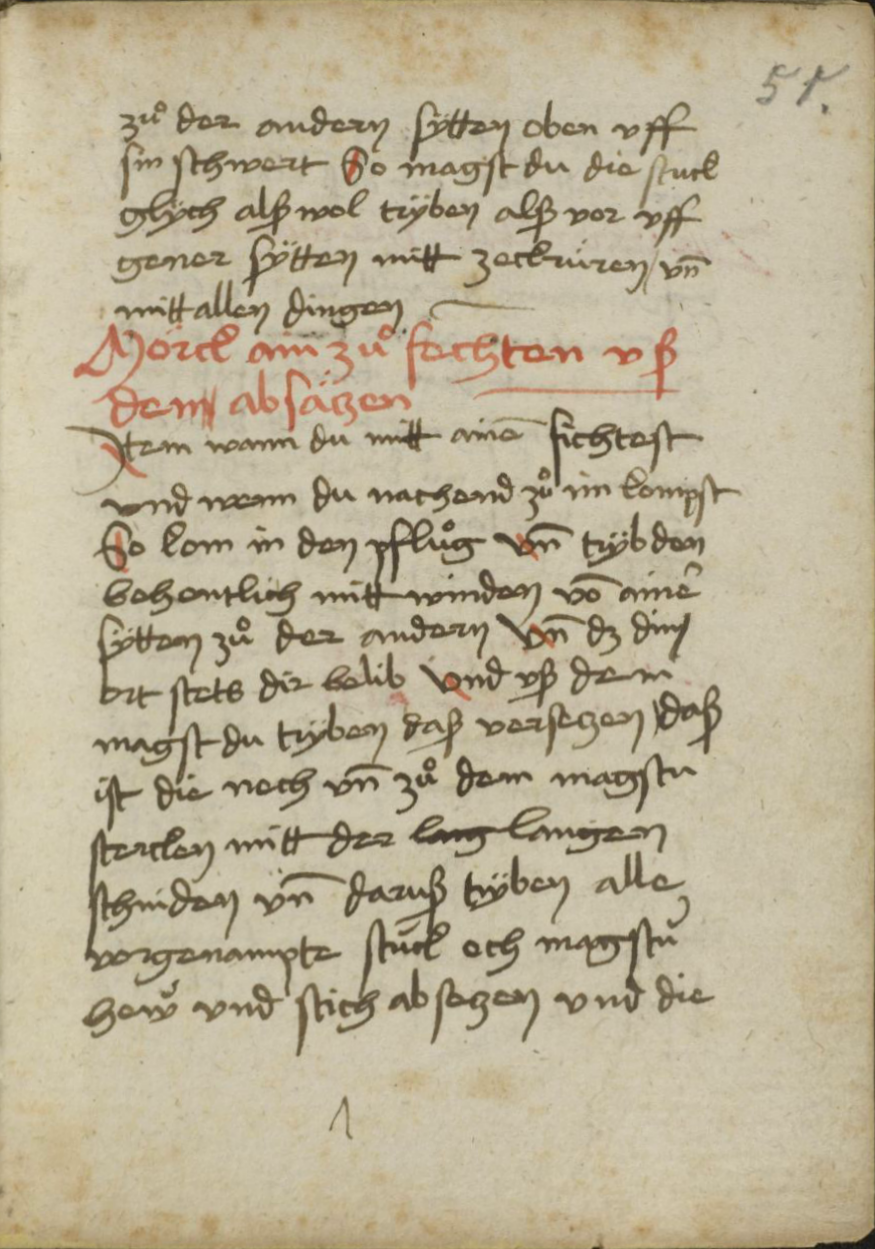 51.
zuͦ der andern sÿtten oben vff
sin schwert So magstdu die stuck
glÿch alß wol trÿben alß vor vff
gener sÿtten mitt zeckrüren / vn̄
mitt allen dingen
Mörck ain zuͦ fechten vß
dem absäczen
Item wann du mitt aine͞ fichtest
vnd wenn du nachend zuͦ im kompst
So kom in den pfluͦg vn̄ trÿb den
behentlich mitt winden vo͞ ainer
sÿtten zuͦ der andern vn̄ dz din
ort stets dir belib vnd vß dem
magst du trÿben daß verseczen daß
ist die nech vn̄ zuͦ dem magstu
stercken mitt der lang langen
schniden vn̄ daruß trÿben alle
vorgenampte stück och magstu
hew vnd stich abseczen vnd die